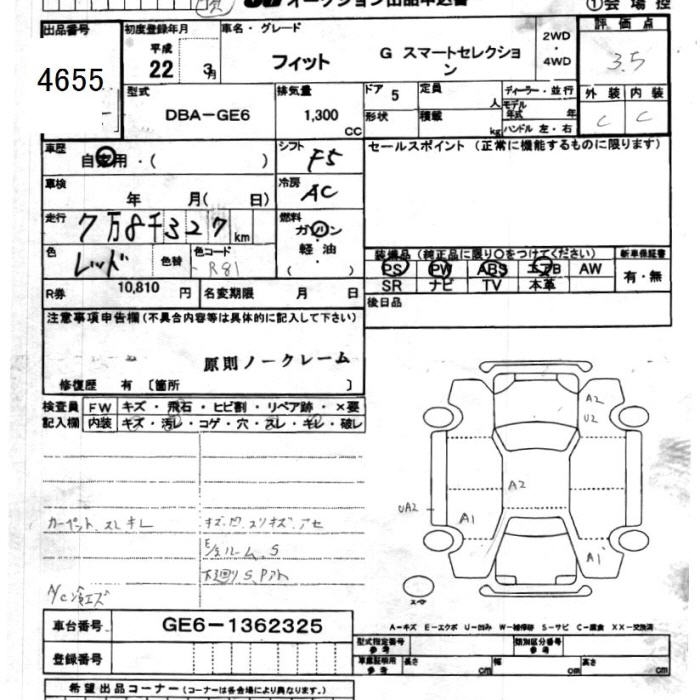 オークション出品申込書 ①会場控
出品番号 初度登録年月 車名・グレード 評価点
4655
平成 22 3月 フィット G スマートセレクション 2WD・4WD 3.5
型式 DBA-GE6 排気量 1,300 cc ドア 5 定員 人 ディーラー・並行 外装 内装
形状 積載 kg モデル年式 年 C C
ハンドル 左・右
車歴 自家用・( ) シフト F5 セールスポイント (正常に機能するものに限ります)
車検 年 月( 日) 冷房 AC
走行 7万8千327km 燃料 ガソリン
軽油
( )
色 レッド 色替 色コード R81
装備品 (純正品に限り○をつけてください) 新車保証書
PS PW ABS エアB AW 有・無
SR ナビ TV 本革
R券 10,810 円 名変期限 月 日 後日品
注意事項申告欄 (不具合内容等は具体的に記入して下さい)
原則ノークレーム
修復歴 有 〔箇所 〕
検査員 FW キズ・飛石・ヒビ割・リペア跡・×要
記入欄 内装 キズ・汚レ・コゲ・穴・スレ・キレ・破レ
カーペット スレ キレ
キズ、凹、スリキズ、アセ
ルーム、S
下廻り S、
A2
U2
A2
UA2
A1
A1
A-キズ E-エクボ U-凹み W-補修跡 S-サビ C-腐食 XX-交換済
車台番号 GE6-1362325
型式指定番号 参考 類別区分番号 参考
登録番号
車庫証明用 参考 長さ cm 幅 cm 高さ cm
希望出品コーナー (コーナーは各会場により異なります。)